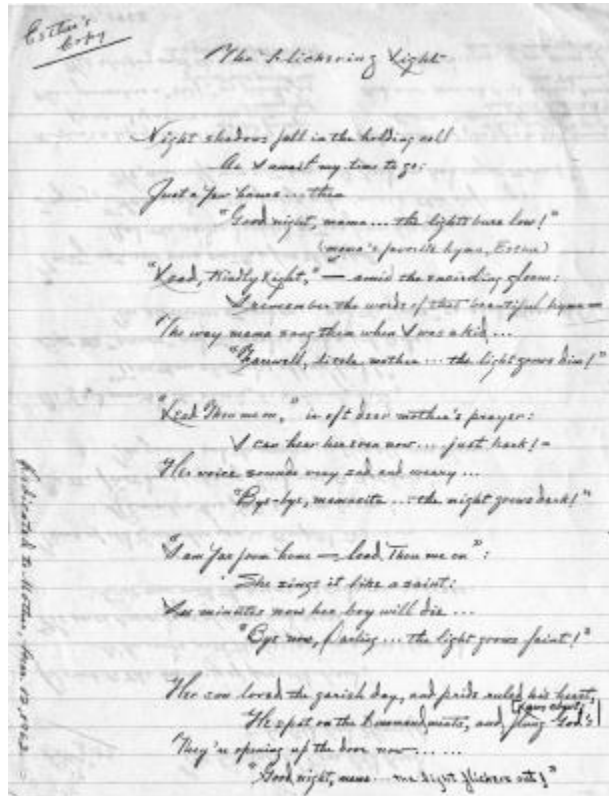 Esther's
Copy
The Flickering Light
Night shadows fall in the holding cell
As I await my time to go:
Just a few hours... then
"Good night, mama... the lights burn low!"
(mama's favorite hymn, Esther)
"Lead, Kindly Light," — amid the encircling gloom:
I remember the words of that beautiful hymn —
The way mama sang them when I was a kid...
"Farewell, little mother... the light grows dim!"
"Lead Thou me on," is oft dear mother's prayer:
I can hear her even now.... just hark! -
Her voice sounds very sad and weary...
"Bye-bye, mamasita... the night grows dark!"
"I am far from home — lead Thou me on":
She sings it like a saint:
minutes now her boy will die...
"Bye now, Darling... the light grows faint!"
Her son loved the garish day, and pride ruled his heart,
He spit on the Commandments, and flung God's
They're opening up the door now......
"Good night, mama... me light flickers out!"
Dedicated to Mother,